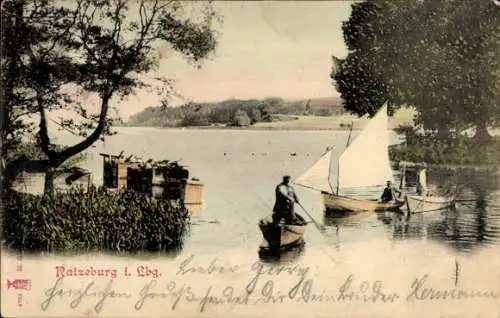 Ratzeburg i. Lbg.
Lieber Georg!
Herzliche Grüsse sendet Dir Dein Bruder Hermann